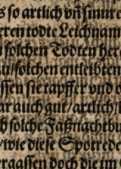 so artlich vñ
eren todte Leichnam
solchen Todten her
solchen entleibten
ssen sie tapffer vnd o
ar auch gut/artlich/
ch solche Faßnachtbu
/wie diese Spotrede
ergassen doch die im